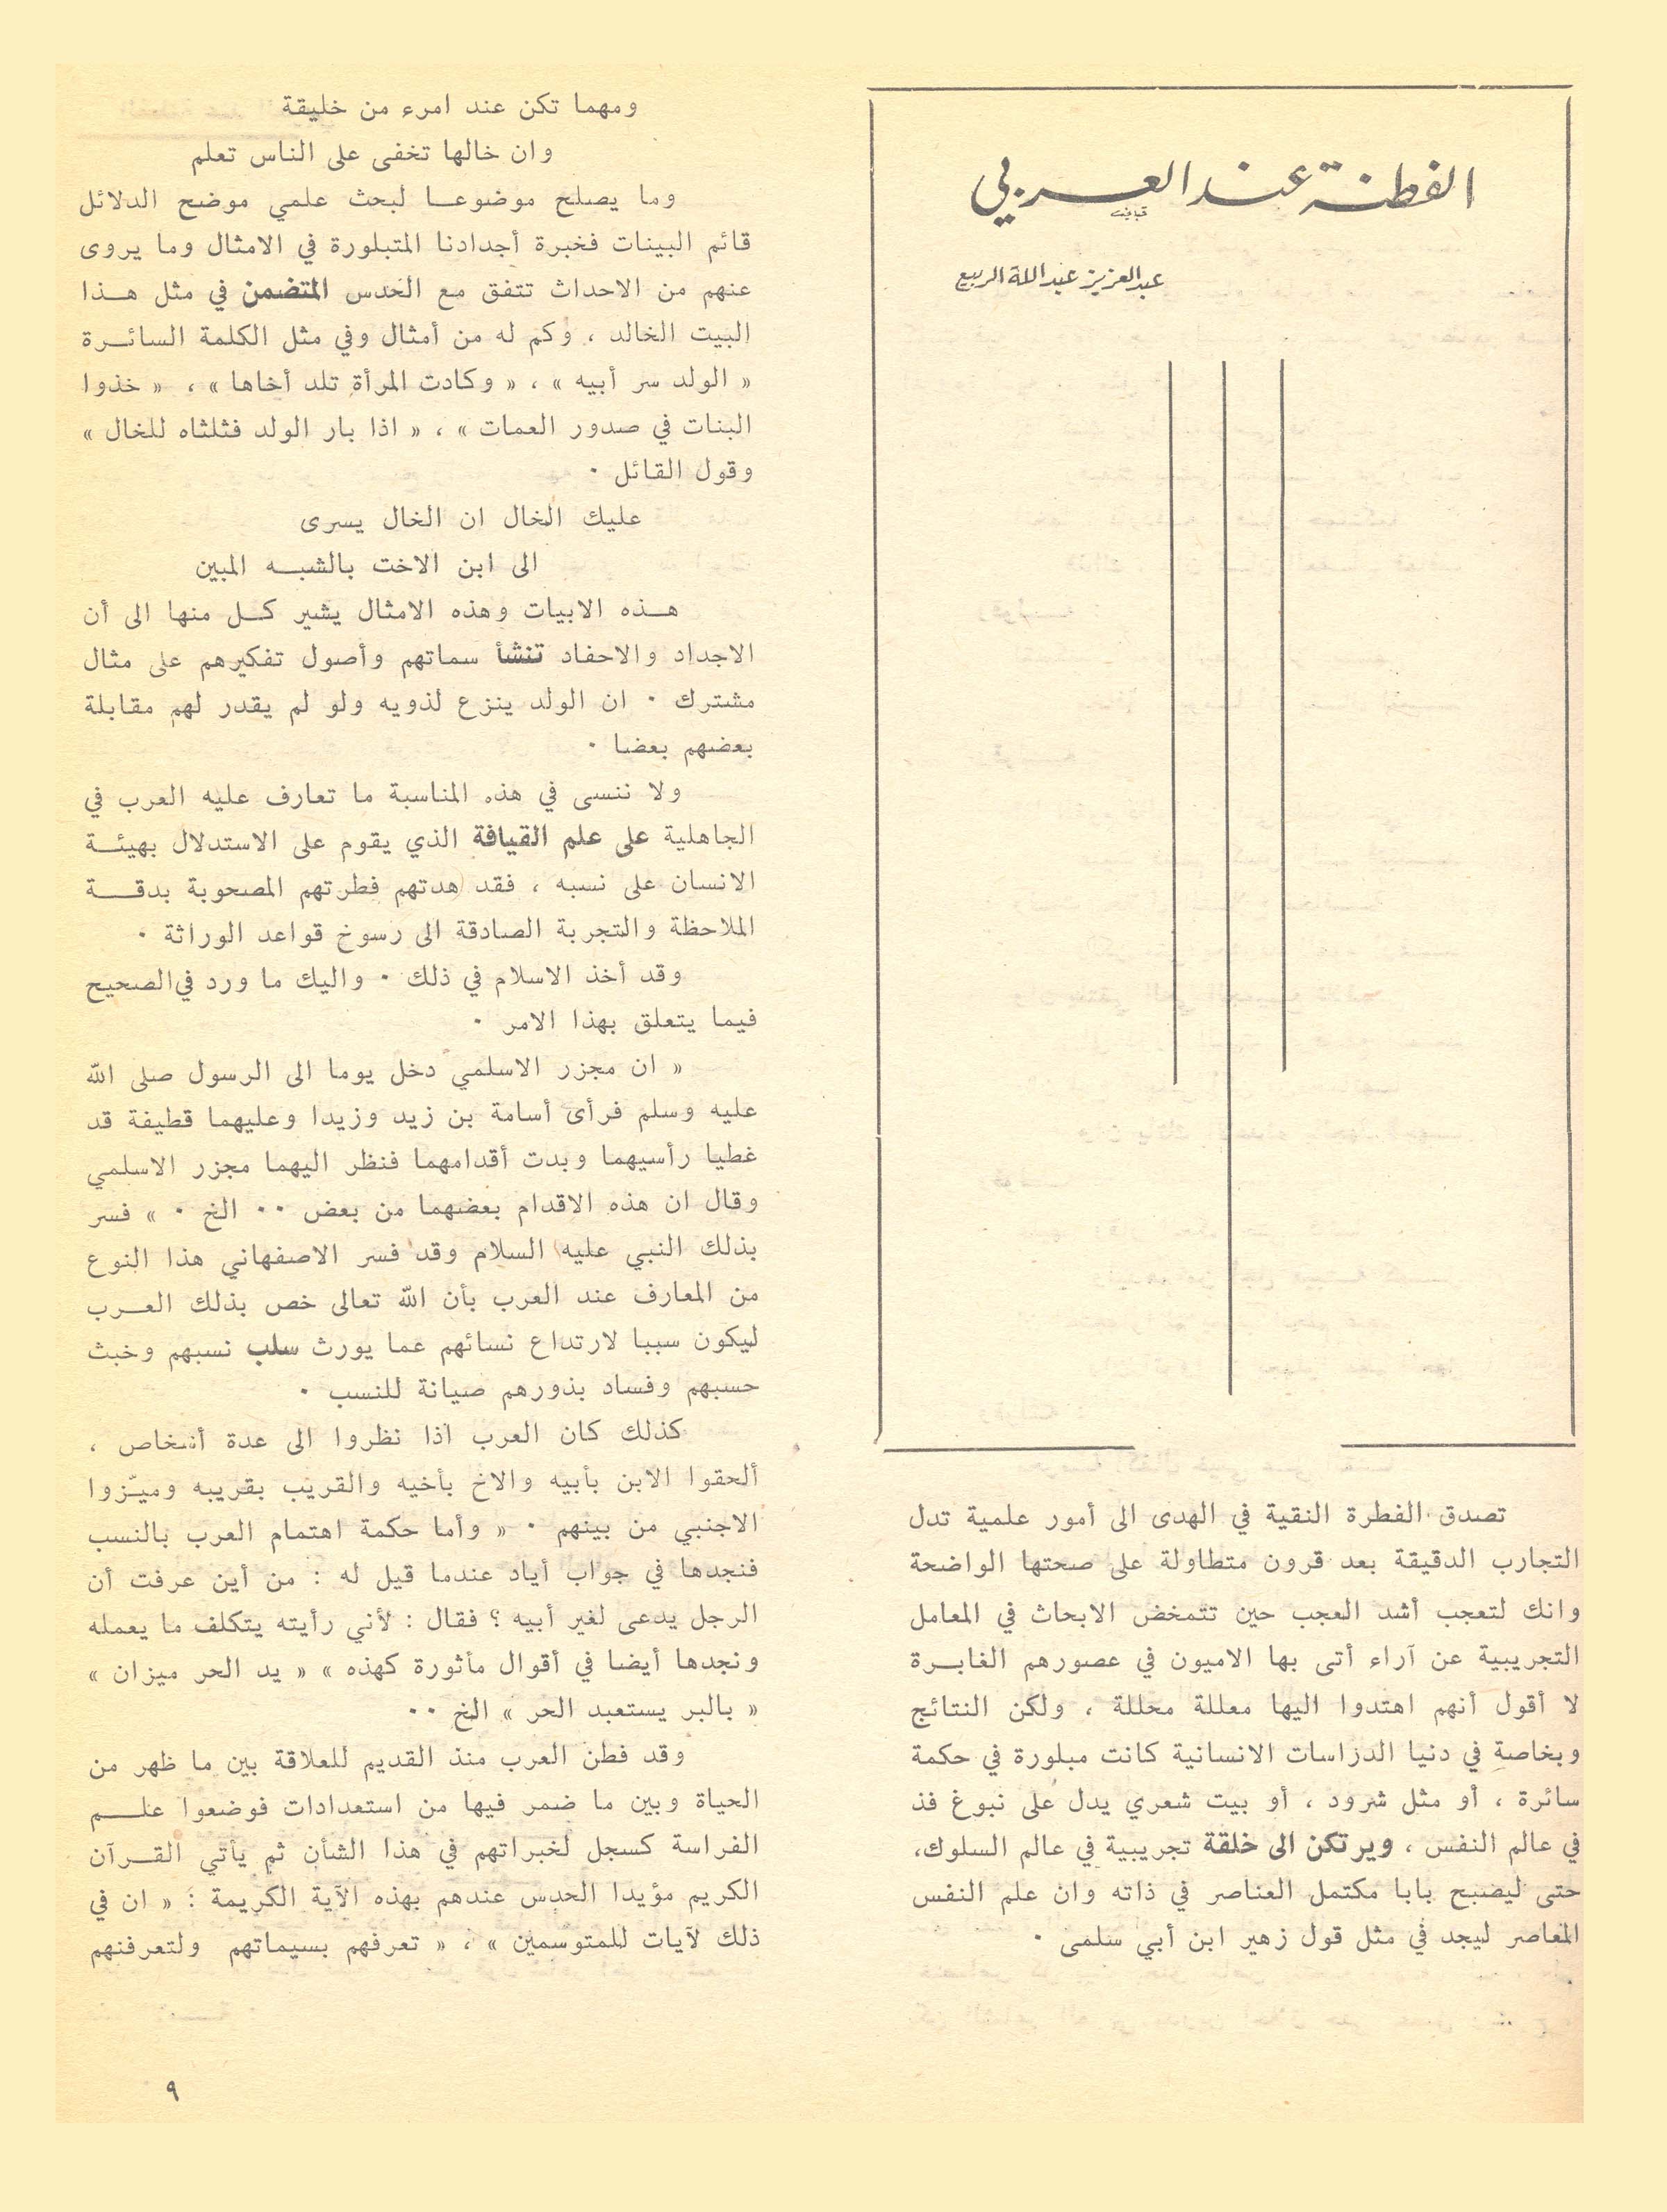 الفطنة عند العربي
عبد العزيز عبد الله الربيع
تصدق الفطرة النقية في الهدى الى أمور علمية تدل
التجارب الدقيقة بعد قرون متطاولة على صحتها الواضحة
وانك لتعجب أشد العجب حين تتمخض الابحاث في المعامل
التجريبية عن آراء أتى بها الاميون في عصورهم الغابرة
لا أقول أنهم اهتدوا اليها معللة محللة ، ولكن النتائج
وبخاصة في دنيا الدراسات الانسانية كانت مبلورة في حكمة
سائرة ، أو مثل شرود ، أو بيت شعري يدل على نبوغ فذ
في عالم النفس ، ويرتكن الى خلقة تجريبية في عالم السلوك،
حتى ليصبح بابا مكتمل العناصر في ذاته وان علم النفس
المعاصر ليجد في مثل قول زهير ابن أبي سلمى ٠
ومهما تكن عند امرء من خليقة
وان خالها تخفى على الناس تعلم
وما يصلح موضوعا لبحث علمي موضح الدلائل
قائم البينات فخبرة أجدادنا المتبلورة في الامثال وما يروى
عنهم من الاحداث تتفق مع الحدس المتضمن في مثل هذا
البيت الخالد ، وكم له من أمثال وفي مثل الكلمة السائرة
« الولد سر أبيه » ، « وكادت المرأة تلد أخاها » ، « خذوا
البنات في صدور العمات » ، « اذا بار الولد فثلثاه للخال »
وقول القائل ٠
عليك الخال ان الخال يسرى
الى ابن الاخت بالشبه المبين
هذه الابيات وهذه الامثال يشير كل منها الى أن
الاجداد والاحفاد تنشأ سماتهم وأصول تفكيرهم على مثال
مشترك ٠ ان الولد ينزع لذويه ولو لم يقدر لهم مقابلة
بعضهم بعضا ٠
ولا ننسى في هذه المناسبة ما تعارف عليه العرب في
الجاهلية على علم القيافة الذي يقوم على الاستدلال بهيئة
الانسان على نسبه ، فقد هدتهم فطرتهم المصحوبة بدقة
الملاحظة والتجربة الصادقة الى رسوخ قواعد الوراثة ٠
وقد أخذ الاسلام في ذلك ٠ واليك ما ورد في الصحيح
فيما يتعلق بهذا الامر ٠
« ان مجزر الاسلمي دخل يوما الى الرسول صلى الله
عليه وسلم فرأى أسامة بن زيد وزيدا وعليهما قطيفة قد
غطيا رأسيهما وبدت أقدامهما فنظر اليهما مجزر الاسلمي
وقال ان هذه الاقدام بعضهما من بعض ٠٠ الخ ٠ » فسر
بذلك النبي عليه السلام وقد فسر الاصفهاني هذا النوع
من المعارف عند العرب بأن الله تعالى خص بذلك العرب
ليكون سببا لارتداع نسائهم عما يورث سلب نسبهم وخبث
حسبهم وفساد بذورهم صيانة للنسب ٠
كذلك كان العرب اذا نظروا الى عدة أشخاص ،
ألحقوا الابن بأبيه والاخ بأخيه والقريب بقريبه وميّزوا
الاجنبي من بينهم ٠ « وأما حكمة اهتمام العرب بالنسب
فنجدها في جواب أياد عندما قيل له : من أين عرفت أن
الرجل يدعى لغير أبيه ؟ فقال : لأني رأيته يتكلف ما يعمله
ونجدها أيضا في أقوال مأثورة كهذه » « يد الحر ميزان »
« بالبر يستعبد الحر » الخ ٠٠
وقد فطن العرب منذ القديم للعلاقة بين ما ظهر من
الحياة وبين ما ضمر فيها من استعدادات فوضعوا علم
الفراسة كسجل لخبراتهم في هذا الشأن ثم يأتي القرآن
الكريم مؤيدا الحدس عندهم بهذه الآية الكريمة : « ان في
ذلك لآيات للمتوسمين » ، « تعرفهم بسيماتهم ولتعرفنهم
٩